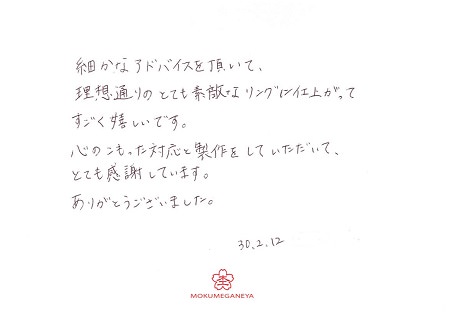 細かなアドバイスを頂いて、
理想通りのとても素敵なリングに仕上がって
すごく嬉しいです。
心のこもった対応と製作をしていただいて、
とても感謝しています。
ありがとうございました。
30.2.12
MOKUMEGANEYA